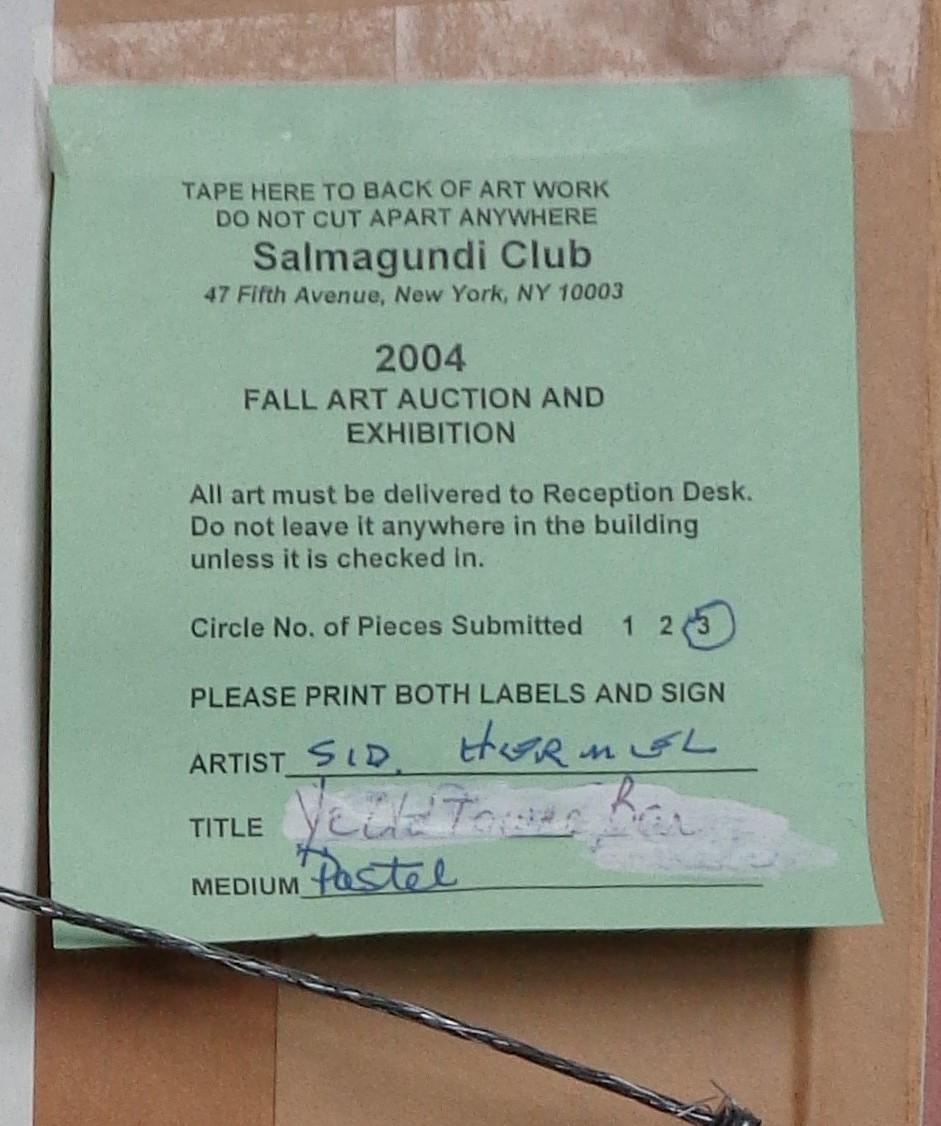 TAPE HERE TO BACK OF ART WORK
DO NOT CUT APART ANYWHERE
Salmagundi Club
47 Fifth Avenue, New York, NY 10003
2004
FALL ART AUCTION AND
EXHIBITION
All art must be delivered to Reception Desk.
Do not leave it anywhere in the building
unless it is checked in.
Circle No. of Pieces Submitted 1 2 3
PLEASE PRINT BOTH LABELS AND SIGN
ARTIST SID. HERMEL
TITLE Bar
MEDIUM Pastel